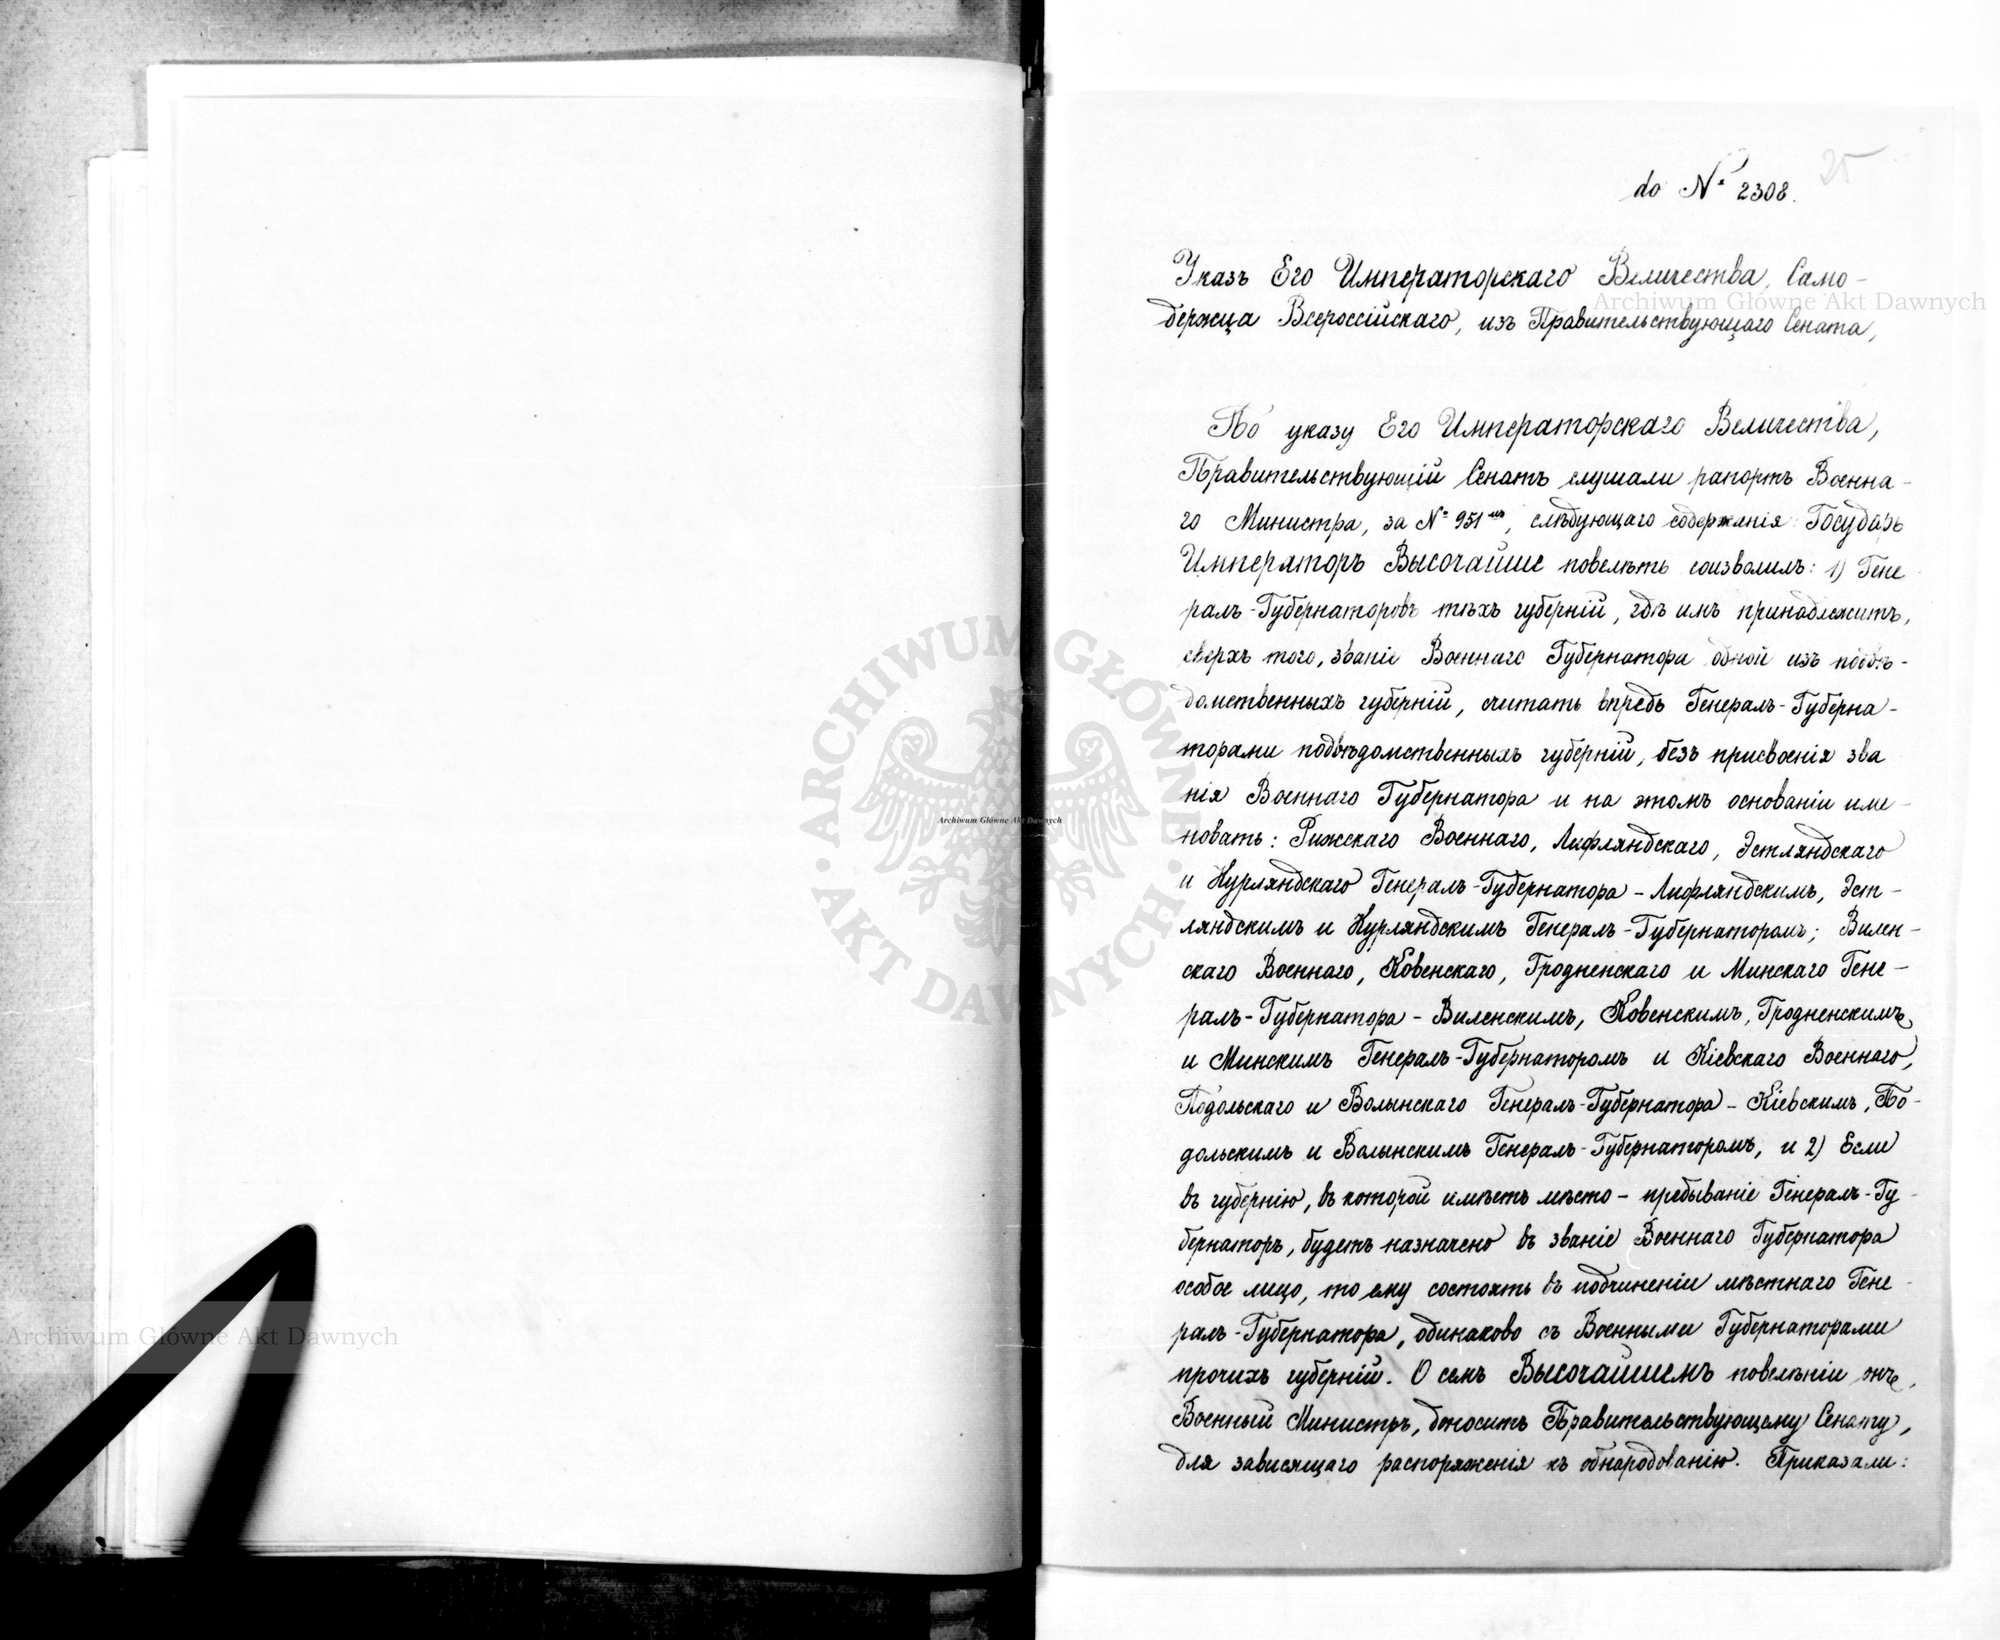 do № 2308.
25
Указъ Его Императорскаго Величества, Само-
держца Всероссійскаго, изъ Правительствующаго Сената,
По указу Его Императорскаго Величества,
Правительствующій Сенатъ слушали рапортъ Военна-
го Министра, за № 951мъ, слѣдующаго содержанія: Государь
Императоръ Высочайше повелѣть соизволилъ: 1) Гене-
ралъ-Губернаторовъ тѣхъ губерній, гдѣ имъ принадлежитъ,
сверхъ того, званіе Военнаго Губернатора одной изъ подвѣ-
домственныхъ губерній, считать впредь Генералъ-Губерна-
торами подвѣдомственныхъ губерній, безъ присвоенія зва
нія Военнаго Губернатора и на этомъ основаніи име-
новать: Рижскаго Военнаго, Лифляндскаго, Эстляндскаго
и Курляндскаго Генералъ-Губернатора – Лифляндскимъ, Эст-
ляндскимъ и Курляндскимъ Генералъ-Губернаторомъ; Вилен-
скаго Военнаго, Ковенскаго, Гродненскаго и Минскаго Гене-
ралъ-Губернатора – Виленскимъ, Ковенскимъ, Гродненскимъ
и Минскимъ Генералъ-Губернаторомъ и Кіевскаго Военнаго,
Подольскаго и Волынскаго Генералъ-Губернатора – Кіевскимъ, По-
дольскимъ и Волынскимъ Генералъ-Губернаторомъ, и 2) Если
въ губернію, въ которой имѣетъ мѣсто-пребываніе Генералъ-Гу-
бернаторъ, будетъ назначено въ званіе Военнаго Губернатора
особое лицо, то ему состоять въ подчиненіи мѣстнаго Гене-
ралъ-Губернатора, одинаково съ Военными Губернаторами
прочихъ губерній. О семъ Высочайшемъ повелѣніи
Военный Министръ, доноситъ Правительствующему Сенату,
для зависящаго распоряженія къ обнародованію. Приказали:
Archiwum Główne Akt Dawnych
Archiwum Główne Akt Dawnych
Archiwum Główne Akt Dawnych
ARCHIWUM GŁÓWNE AKT DAWNYCH